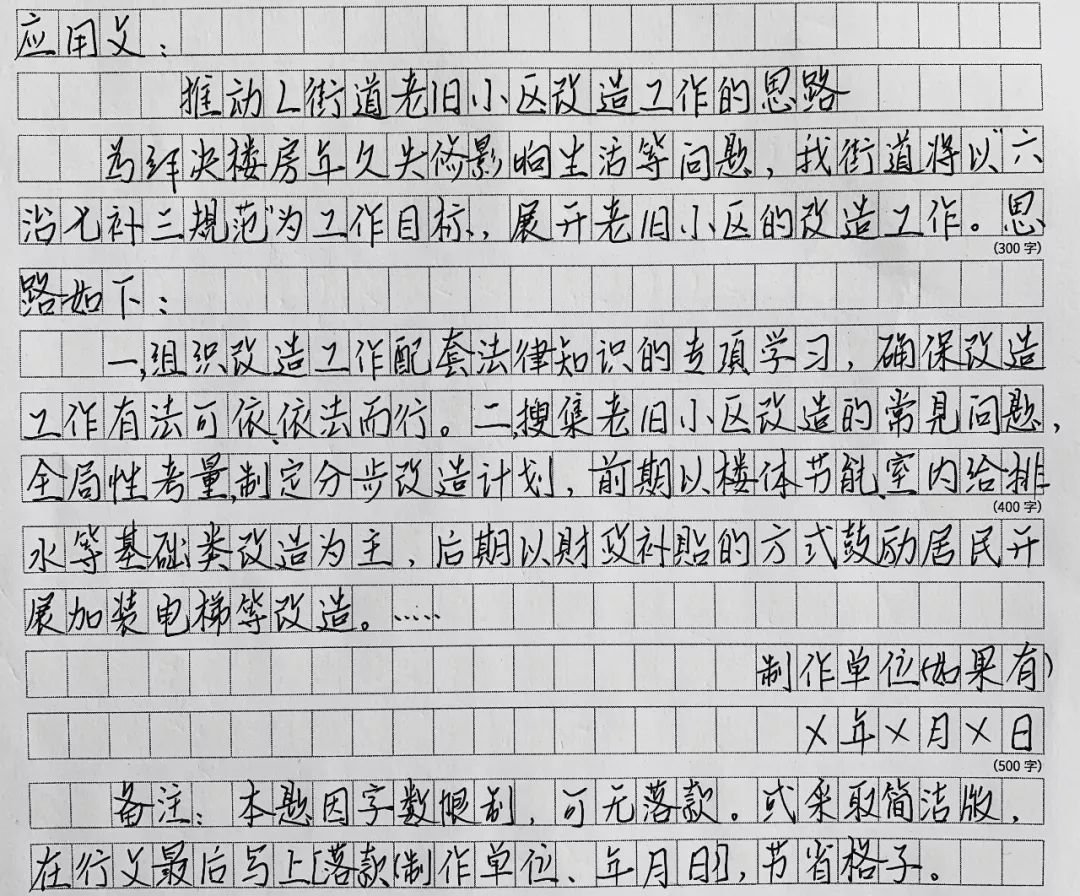 应用文：
推动L街道老旧小区改造工作的思路
为解决楼房年久失修影响生活等问题，我街道将以“六
治七补三规范”为工作目标，展开老旧小区的改造工作。思
(300字)
路如下：
一，组织改造工作配套法律知识的专项学习，确保改造
工作有法可依、依法而行。二，搜集老旧小区改造的常见问题，
全局性考量，制定分步改造计划，前期以楼体节能、室内给排
(400字)
水等基础类改造为主，后期以财政补贴的方式鼓励居民开
展加装电梯等改造。……
制作单位(如果有)
X年X月X日
(500字)
备注：本题因字数限制，可无落款。或采取简洁版，
在行文最后写上[落款(制作单位、年月日)]，节省格子。